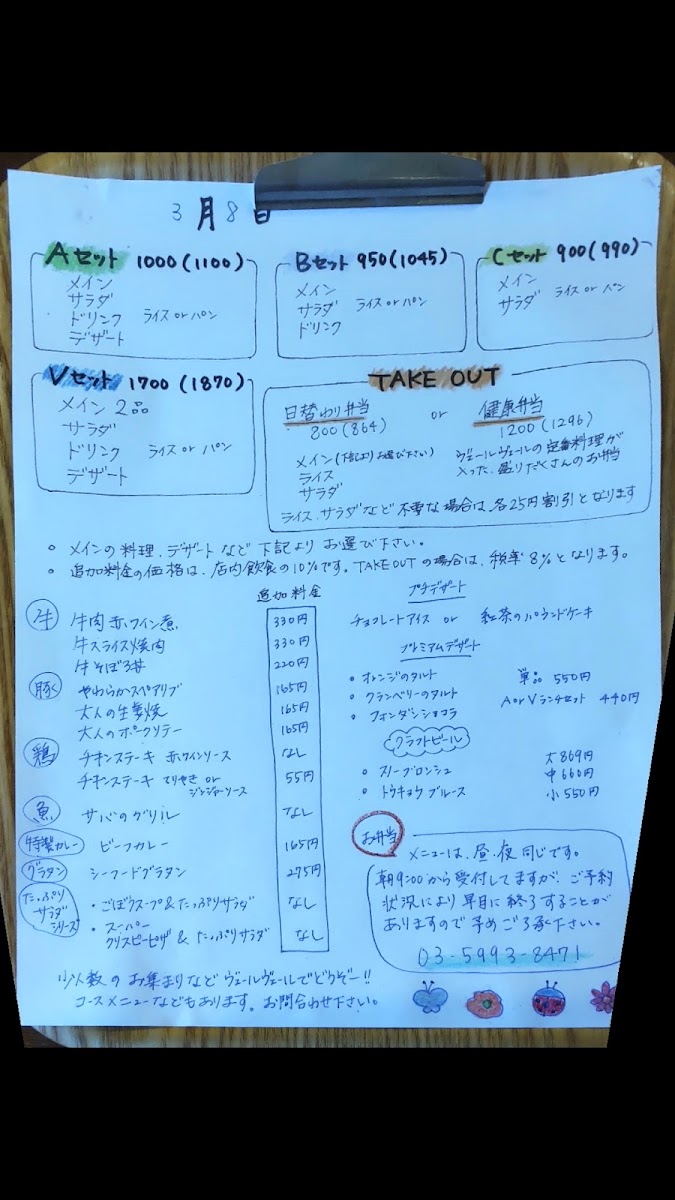 3月8日
Aセット 1000(1100)
メイン
サラダ
ドリンク ライス or パン
デザート
Bセット 950(1045)
メイン
サラダ ライス or パン
ドリンク
Cセット 900(990)
メイン
サラダ ライス or パン
Vセット 1700(1870)
メイン 2品
サラダ
ドリンク ライス or パン
デザート
TAKE OUT
日替わり弁当 or 健康弁当
800(864) 1200(1296)
メイン(下記よりお選び下さい)
ライス
サラダ
ヴェールヴェールの定番料理が
入った、盛りだくさんのお弁当
ライス、サラダなど不要な場合は、各25円割引となります
○ メインの料理、デザートなど下記よりお選び下さい。
○ 追加料金の価格は、店内飲食の10%です。TAKEOUTの場合は、税率8%となります。
追加料金
牛 牛肉赤ワイン煮 330円
牛スライス焼肉 330円
牛そぼろ丼 220円
豚 やわらかスペアリブ 165円
大人の生姜焼 165円
大人のポークソテー 165円
鶏 チキンステーキ 赤ワインソース なし
チキンステーキ てりやき or ジンジャーソース 55円
魚 サバのグリル なし
特製カレー ビーフカレー 165円
グラタン シーフードグラタン 275円
たっぷりサラダシリーズ
・ごぼうスープ&たっぷりサラダ なし
・スーパークリスピーピザ & たっぷりサラダ なし
プチデザート
チョコレートアイス or 紅茶のパウンドケーキ
プレミアムデザート
○ オレンジのタルト 単品 550円
○ クランベリーのタルト A or Vランチセット 440円
○ フォンダンショコラ
クラフトビール
大 869円
○ スノーブロンシュ 中 660円
○ トウキョウブルース 小 550円
お弁当
メニューは、昼、夜 同じです。
朝9:00から受付してますが、ご予約
状況により早目に終了することが
ありますので予めご了承下さい。
03-5993-8471
少人数のお集まりなどヴェールヴェールでどうぞー!!
コースメニューなどもあります。お問合わせ下さい。